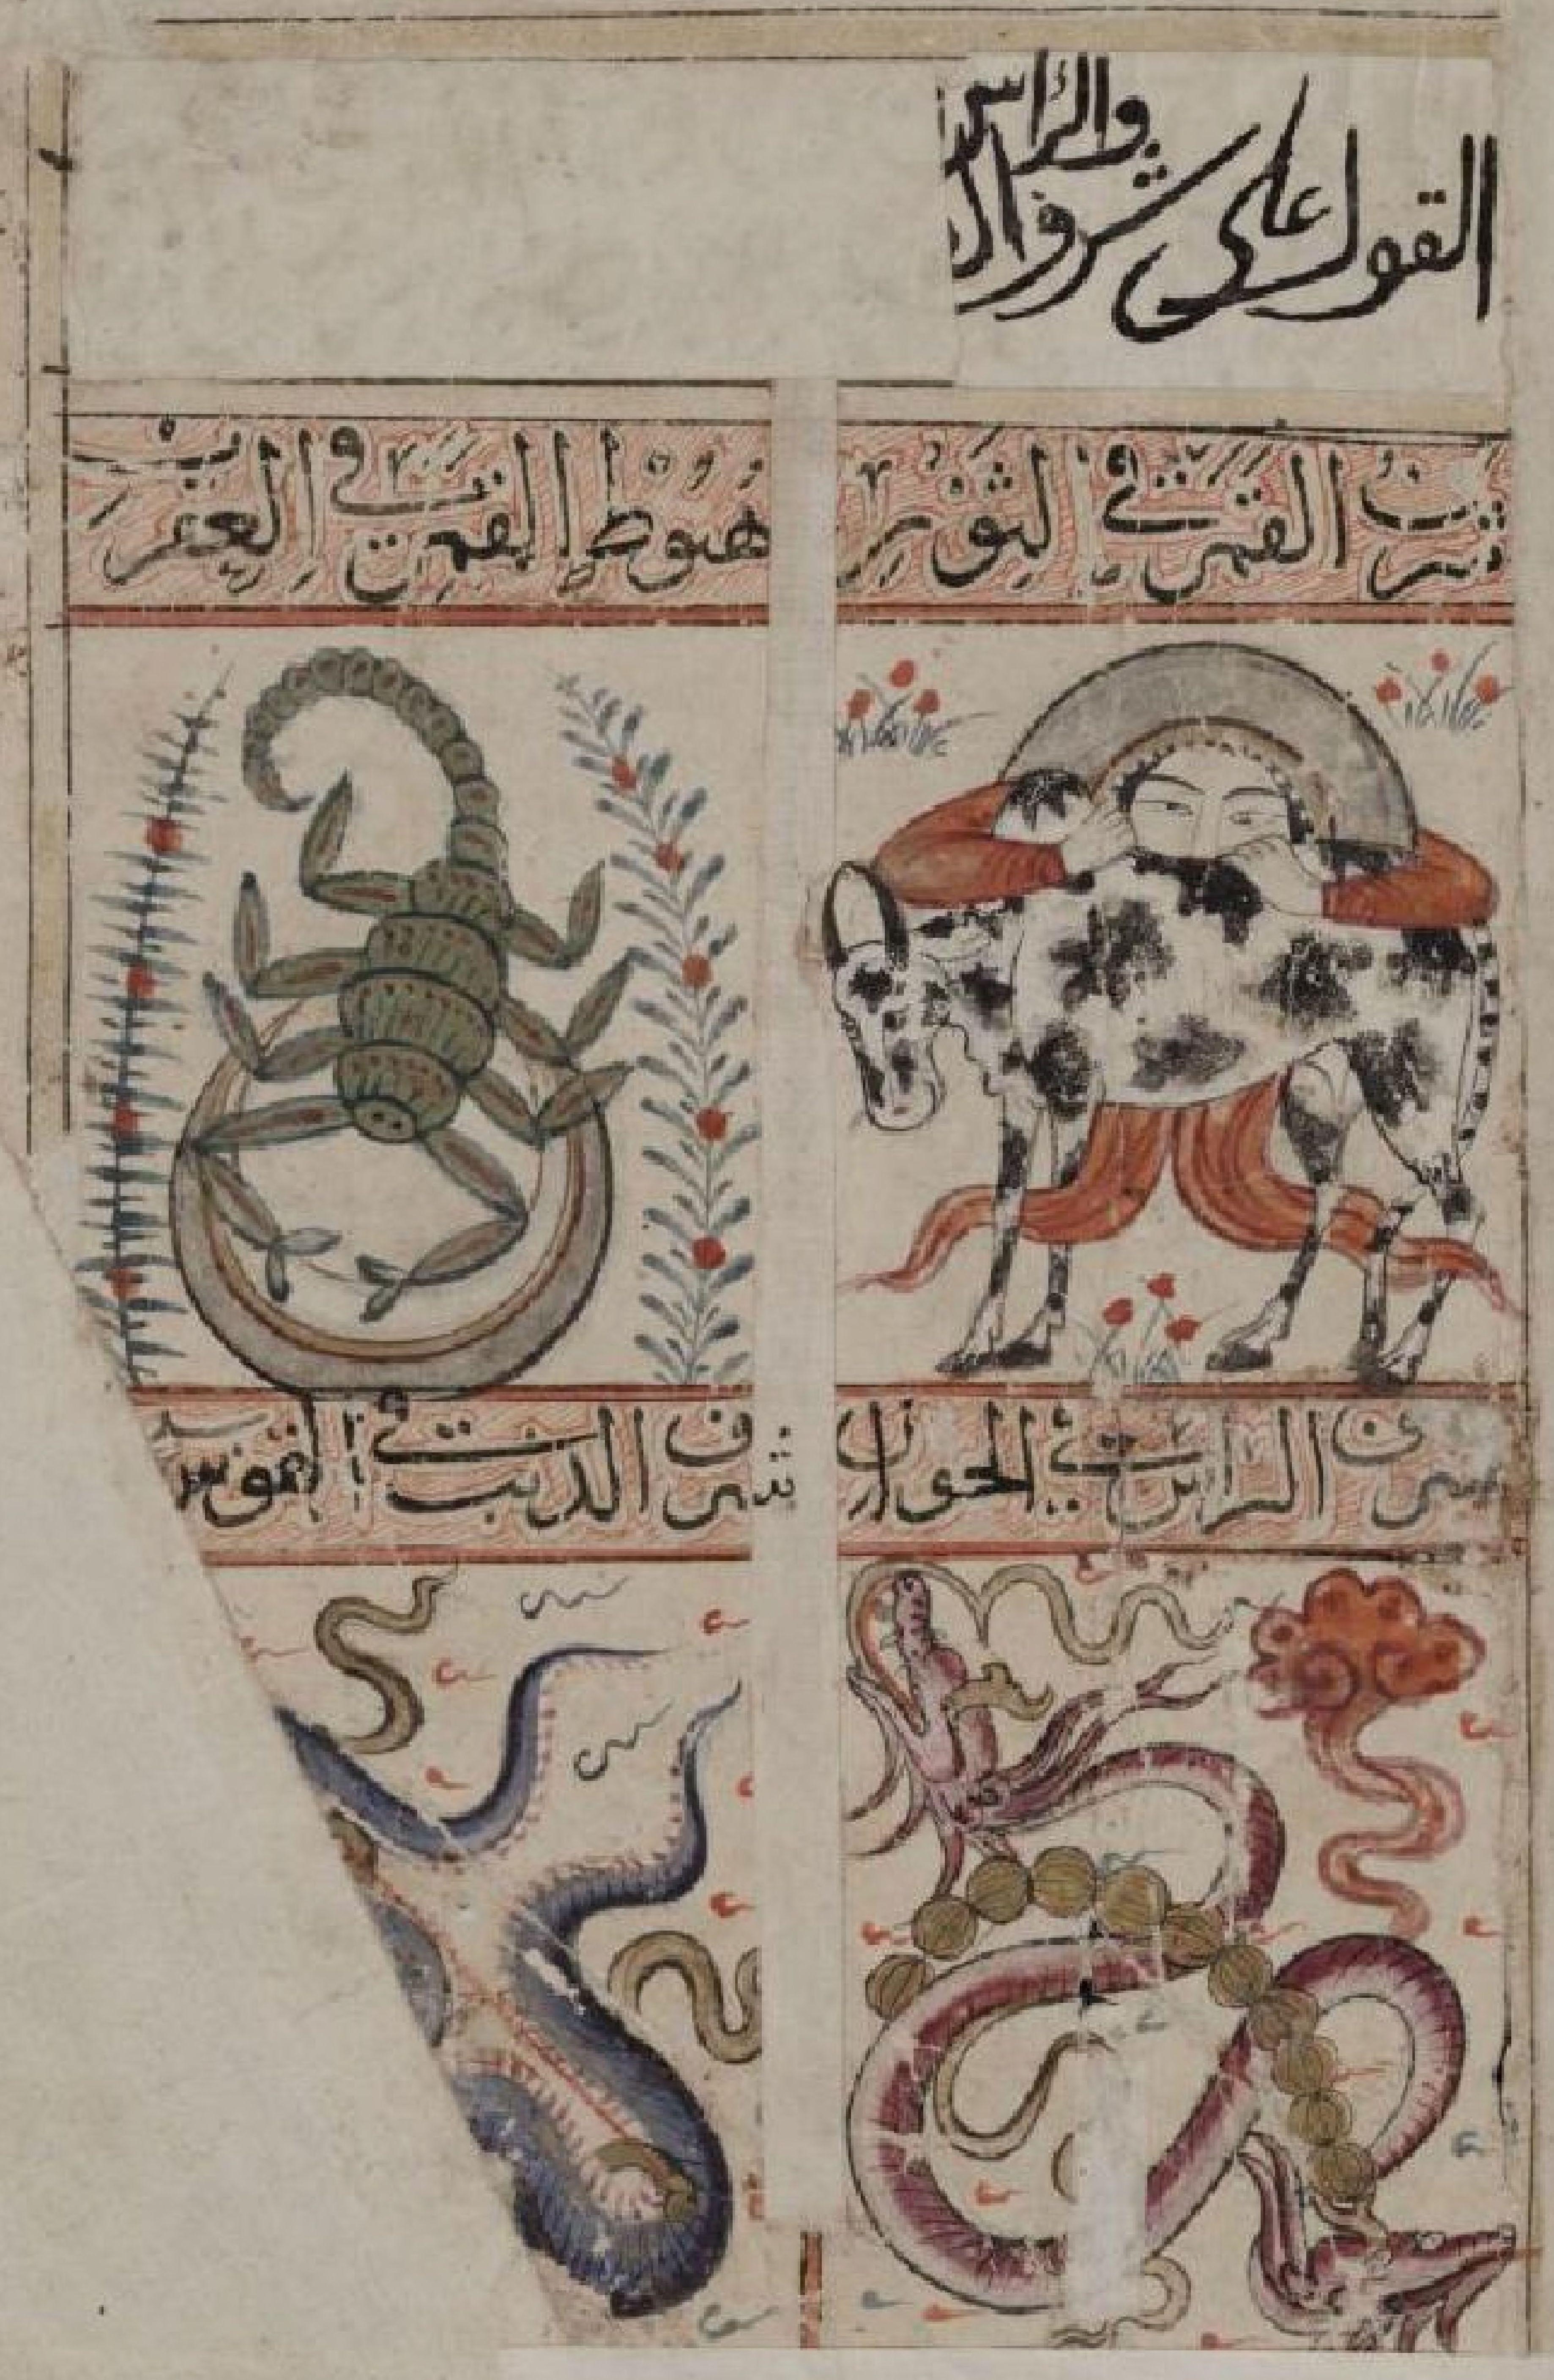 القول على شرف
والراس
شرف القمر في الثور
هبوط القمر في العقرب
شرف الراس في الجوزا
شرف الذنب في القوس